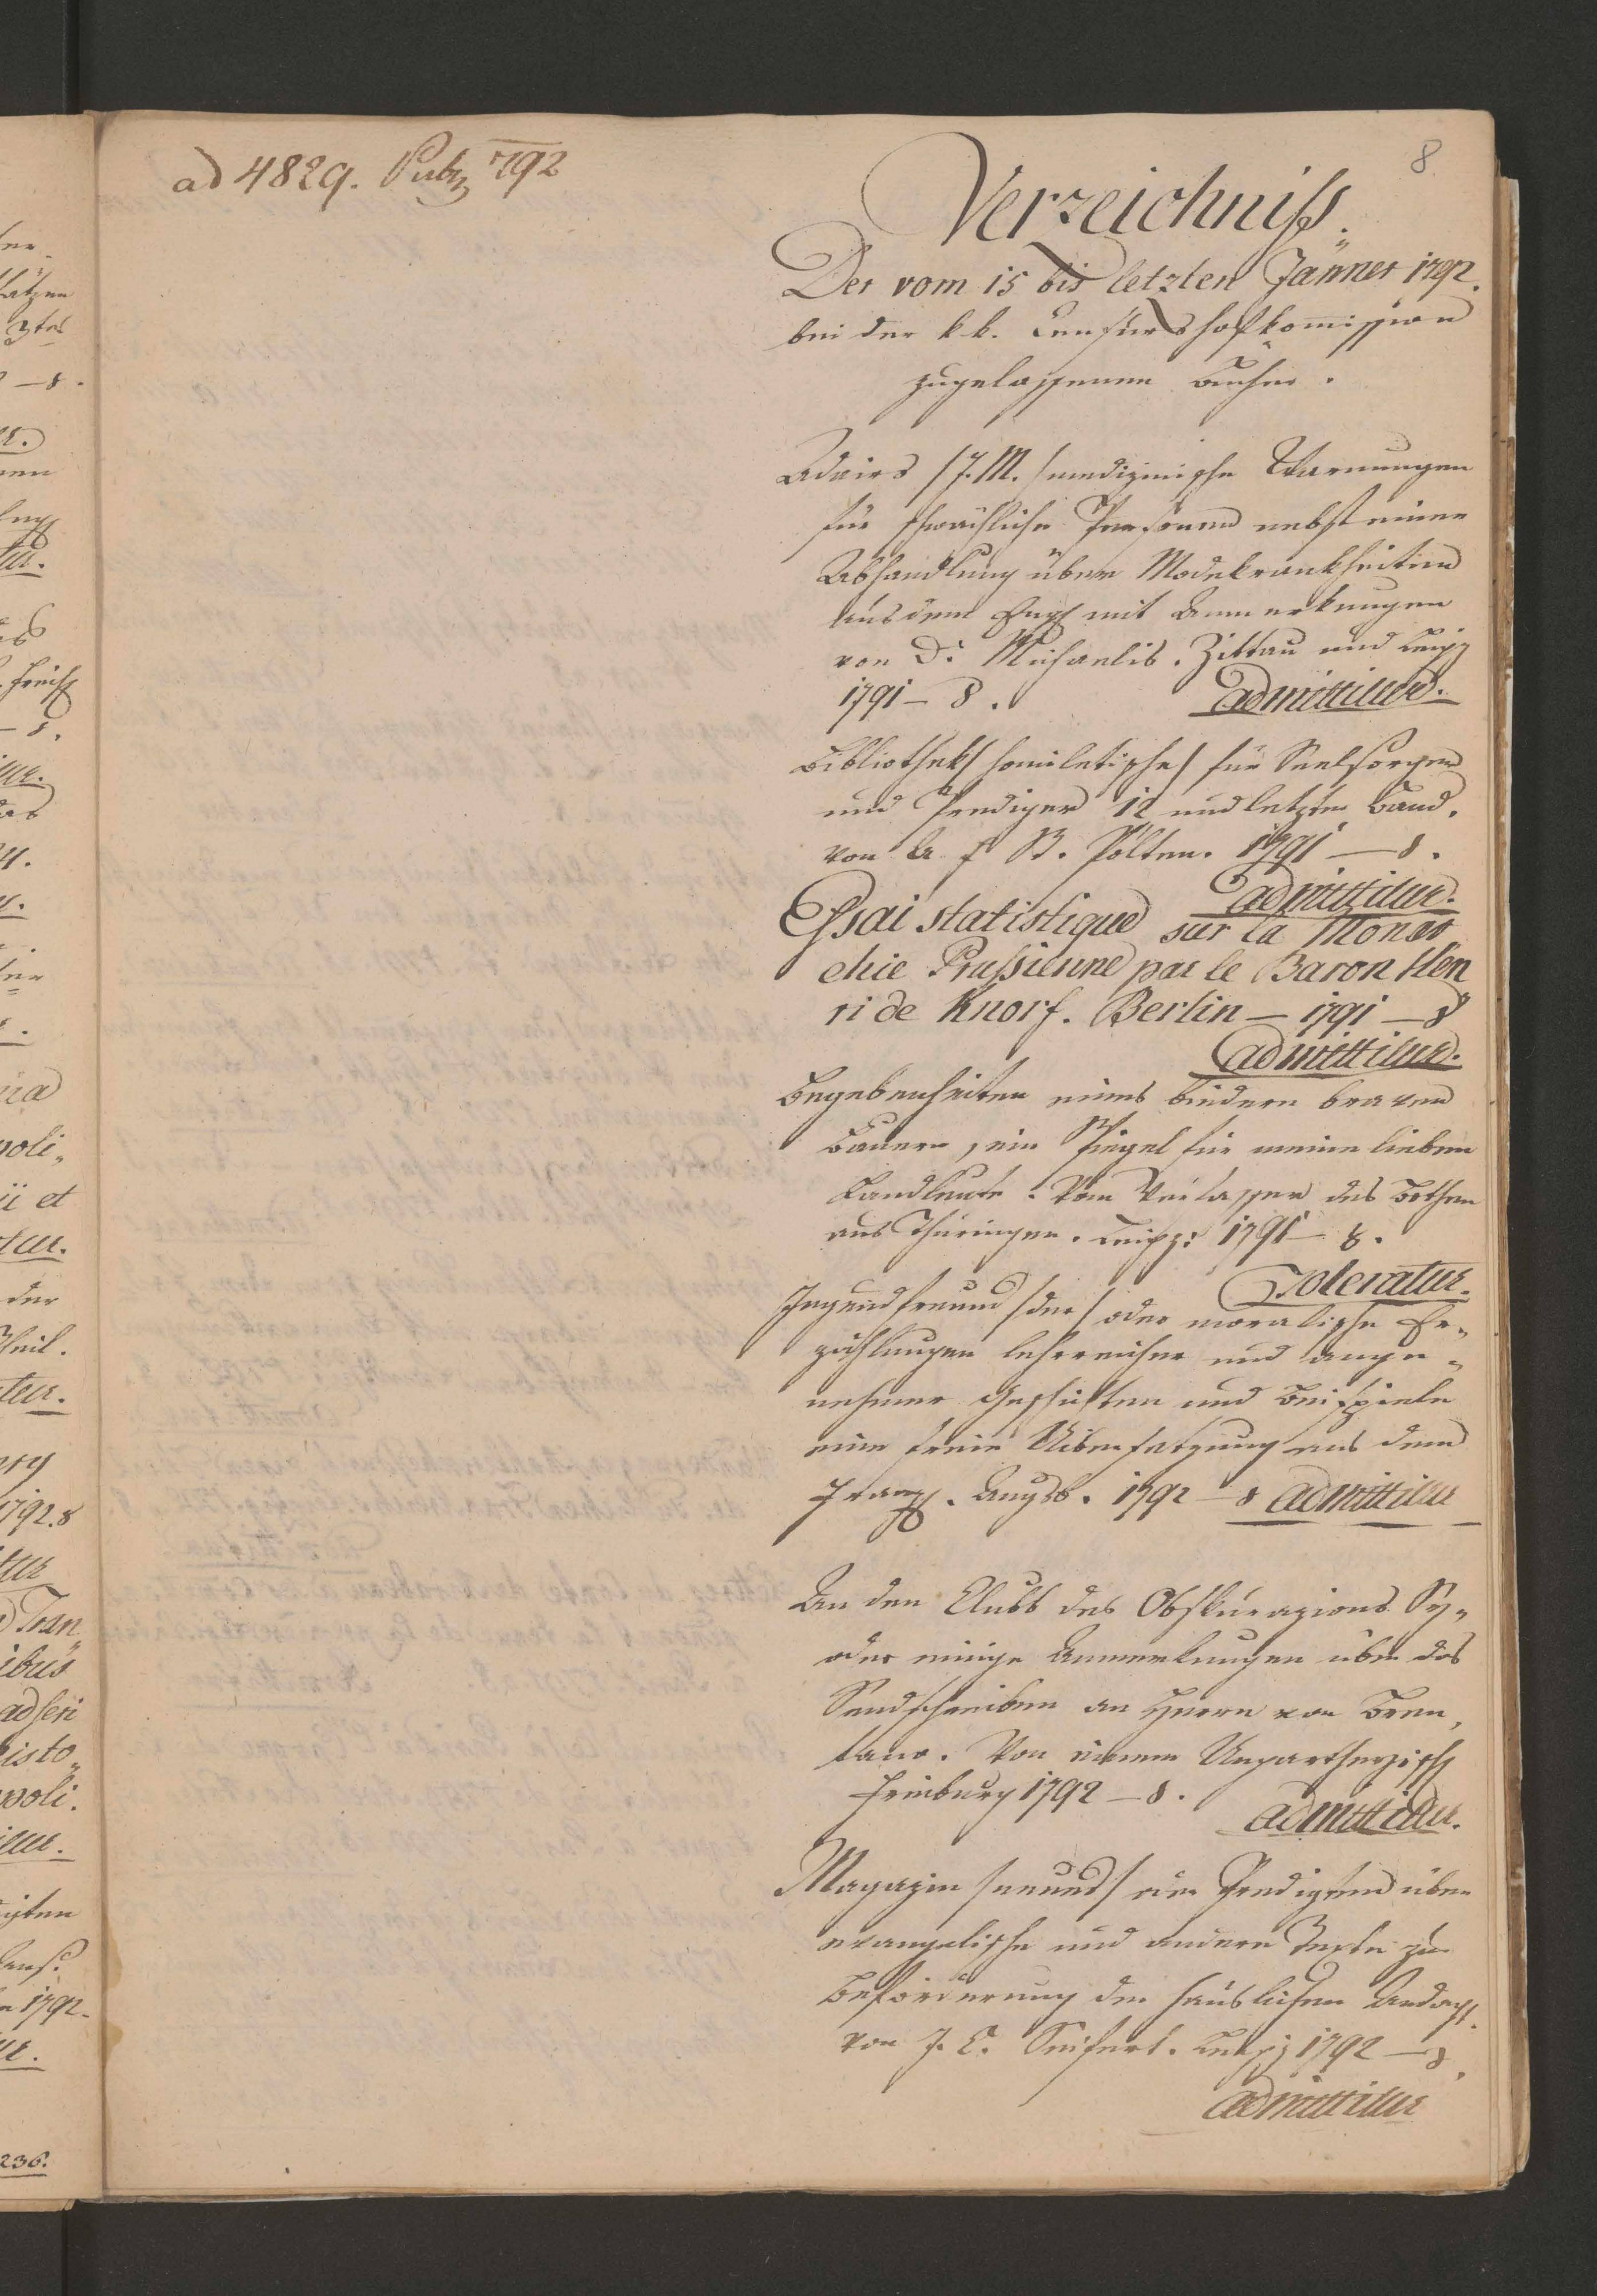 ad 4829. 792
8
Verzeichniß.
Der vom 15 bis letzten Jänner 1792.
bei der k. k. Censurshofkommission
zugelassenen Bücher.
Adairs /J. M./ medizinische Warnungen
für schwächliche Personen nebst einer
Abhandlung über Modekrankheiten
aus dem Engl mit Anmerkungen
von D: Michaelis. Zittau und Leipz
1791 – 8. admittitur.
Bibliothek /homiletische/ für Seelsorger
und Prediger 12 und letzter Band.
von St. Pölten. 1791 – 8.
admittitur.
Essai statistique sur la Monar
chie Prussienne par le Baron Hen
ri de Knorf. Berlin – 1791 – 8
admittitur.
Begebenheiten eines biedern braven
Bauern, ein Spiegel für meine lieben
Landleute. Vom Verfasser des Bothen
aus Thüringen. Leipz: 1791 – 8.
Toleratur.
Jugendfreund /der/ oder moralische Er-
zählungen lehrreicher und ange-
nehmer Geschichten und Beispiele
eine freie Uibersetzung aus dem
Franz. Augsb. 1792 – 8 admittitur
An den Clubb des Obskurazions Sy-
oder einige Anmerkungen über das
Sendschreiben an Herrn von Bren,
tano. Von einem
Freiburg 1792 – 8.
admittitur.
Magazin /neues/ von Predigten über
evangelische und andere Texte zur
Beförderung der häuslichen Andacht.
von J. C. Seifert. Leipz 1792 – 8.
admittitur